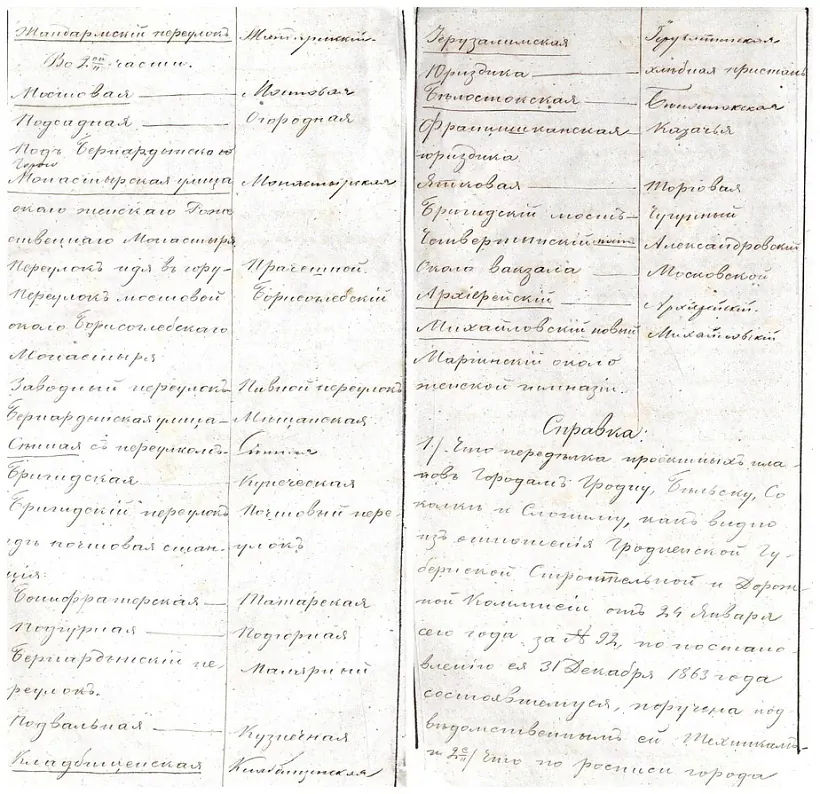 Жандармскій переулокъ
Во 2ой части.
Мостовая — Мостовая
Подсадная — Огородная
Подъ Бернардынскою
горою
Монастырская улица Монастырская
около женскаго Рож
ственнаго Монастыря
Переулокъ идя въ гору — Прачешной.
Переулокъ мостовой Борисоглебскій
около Борисоглебскаго
Монастыря
Заводный переулокъ Пивной переулокъ
Бернардынская улица — Мѣщанская
Сѣнная съ переулкомъ Сѣнная
Бригидская Купеческая
Бригидскій переулокъ Почтовый пере
гдѣ почтовая стан улокъ
ція:
Бонифратерская — Татарская
Подгурная — Подгорная
Бернардынскій пе Малярный
реулокъ.
Подвальная — Кузнечная
Кладбищенская Кладбищенская
Іерузалимская
Юриздика — хлѣбная пристань
Бѣлостокская — Бѣлостокская
Францишканская Казачья
юриздика
Ятковая — Торговая
Бригидскій мостъ — Чугунный
Четвертынскій Александровскій
Около вакзала — Московской
Архіерейскій — Архіерейскій.
Михайловскій новый Михайловскій
Маріинскій около
женской гимназіи.
Справка.
1./ Что передѣлка проектныхъ пла-
новъ Городамъ Гродну, Бѣльску, Со
колки и Слониму, какъ видно
изъ отношенія Гродненской Гу-
бернской Строительной и Дорож-
ной Коммисіи отъ 24 Января
сего года за № 92, по постано-
влению ея 31 Декабря 1863 года
состоявшемуся, поручена под-
вѣдомственнымъ ей Техникамъ
и 2е/ Что по росписи города